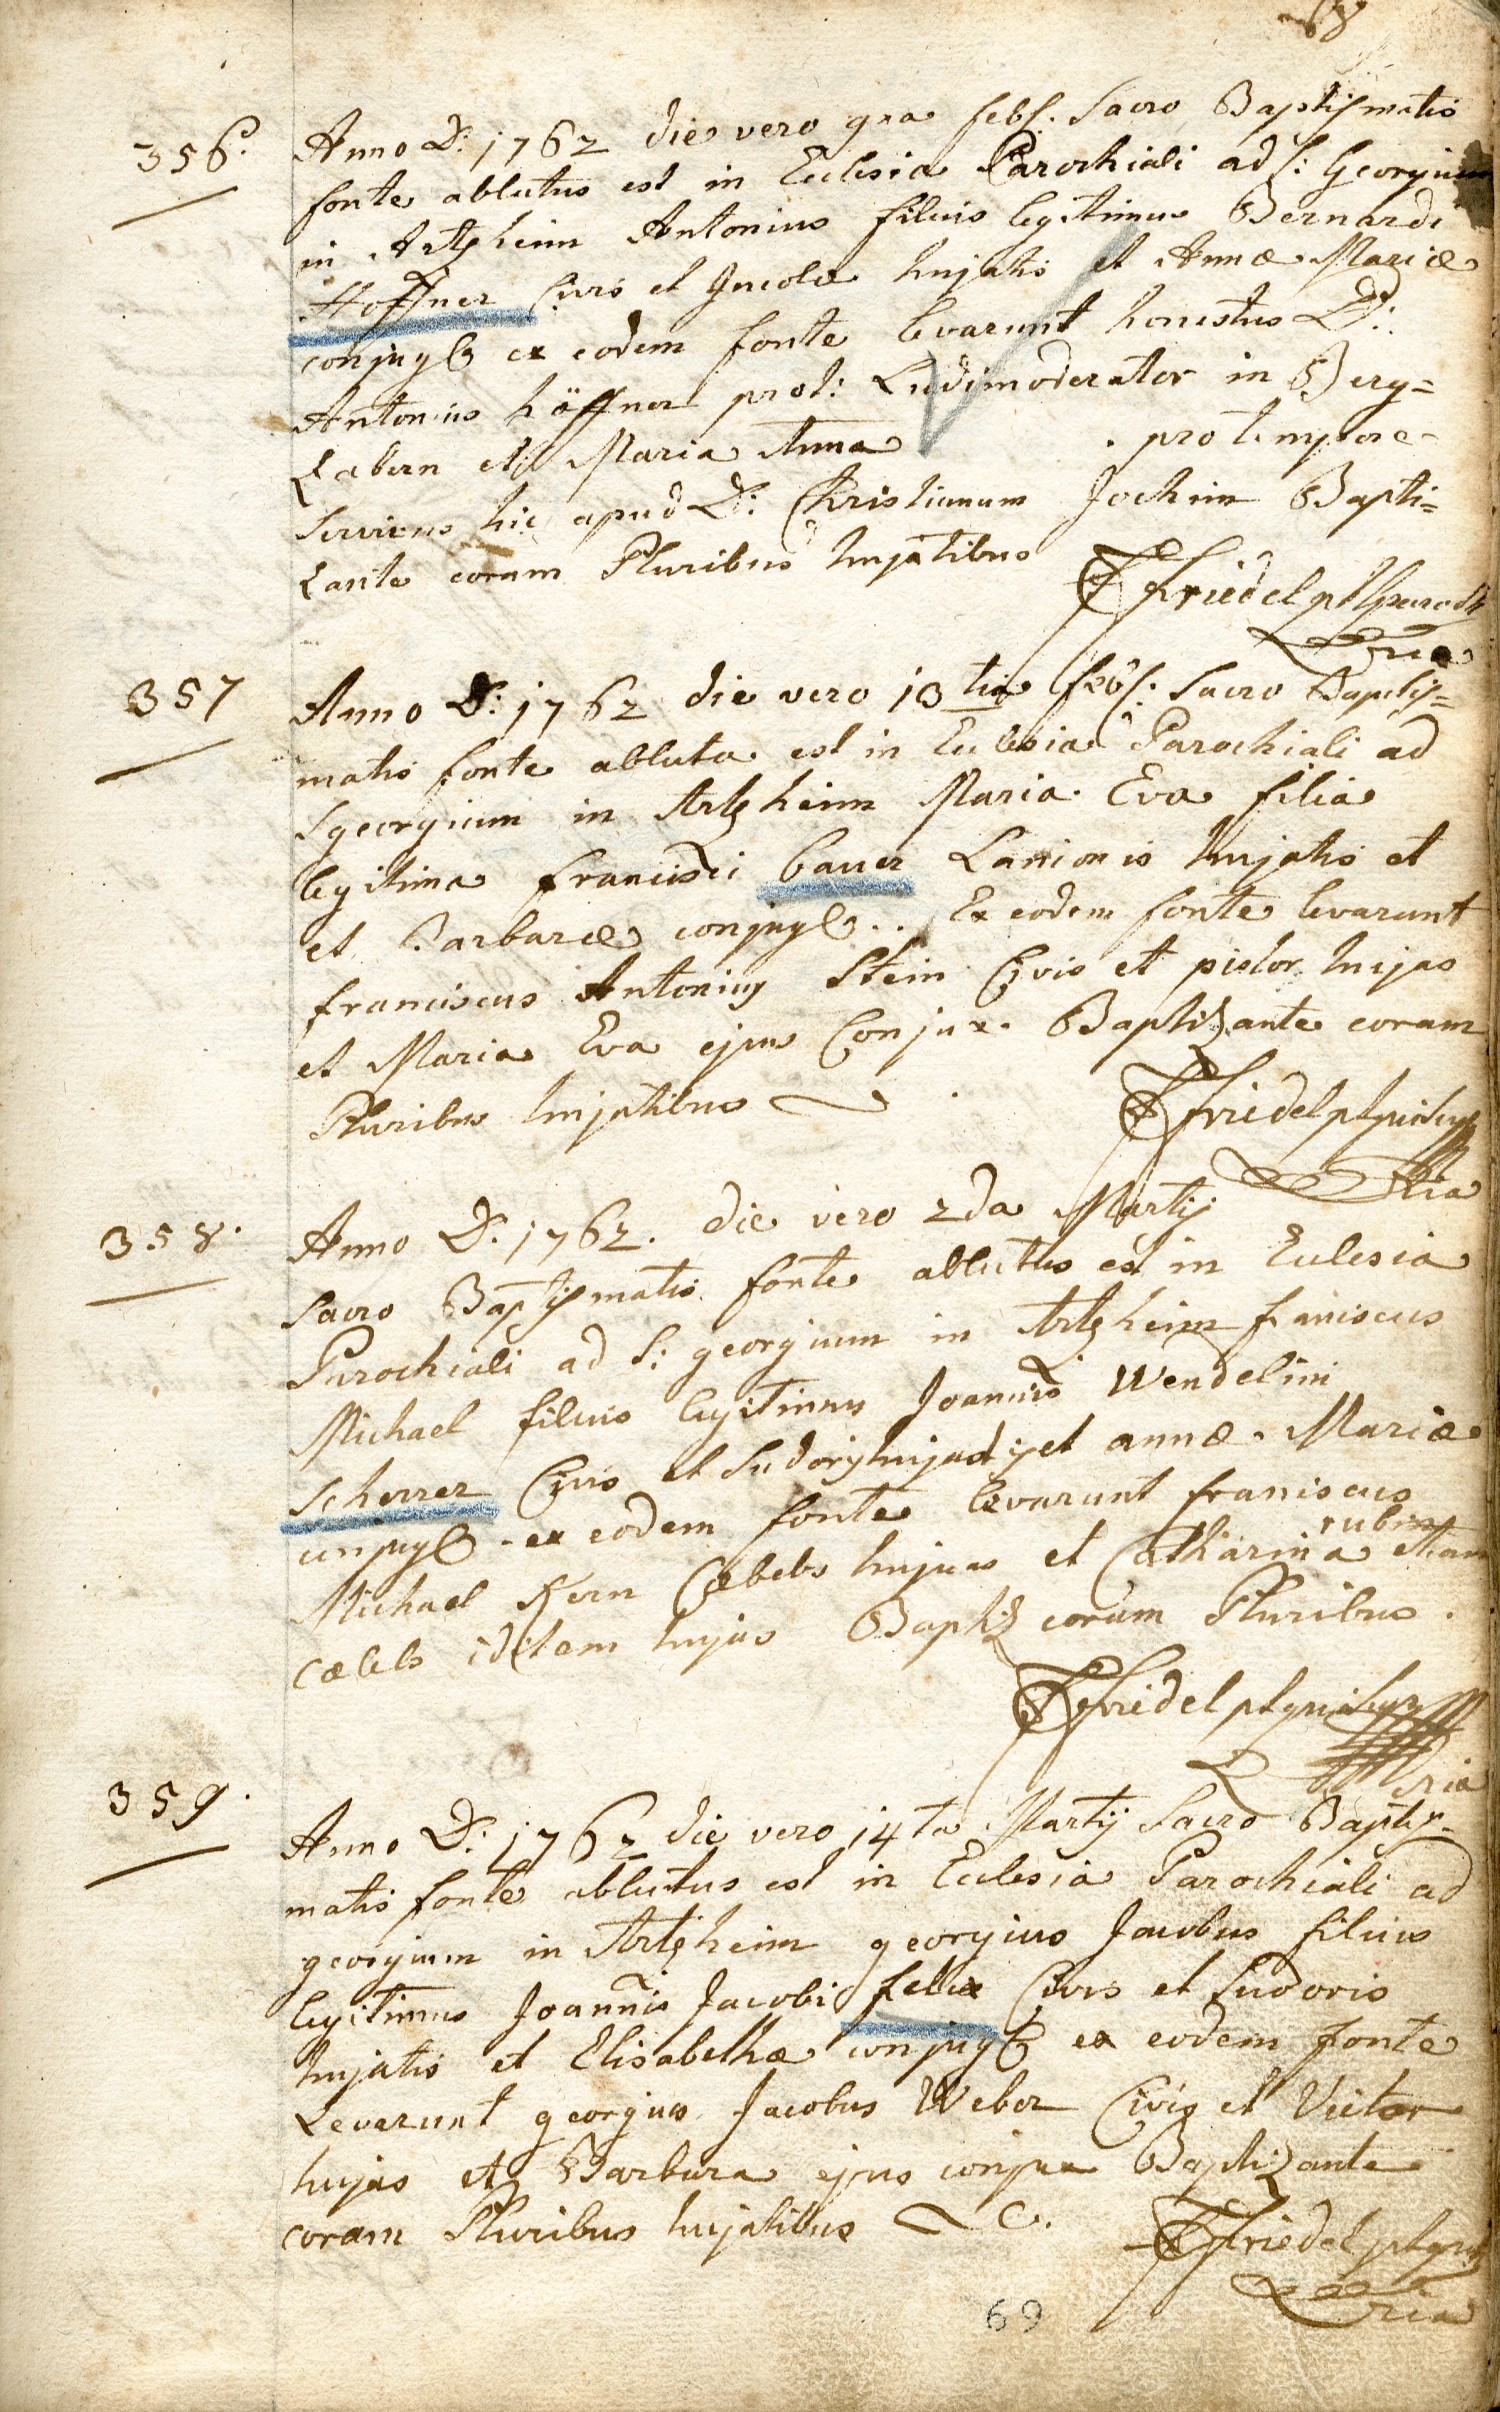 68
356. Anno D: 1762 die vero 9na feb: Sacro Baptismatis
fonte ablutus est in Ecclesia Parochiali ad S: Georgium
in Artzheim Antonius filius legitimus Bernardi
Hoffner Civis et Incolæ hujatis et Annæ Mariæ
conjug ex eodem fonte levarunt honestus D:
Antonius höffner prot: Ludimoderator in Berg=
Zabern et Maria Anna . pro tempore
Serviens hic apud D: Christianum Jochim Bapti=
zante coram Pluribus hujatibus
Friedel
357 Anno D: 1762 die vero 13tia feb: Sacro Baptis=
matis fonte abluta est in Ecclesia Parochiali ad
S georgium in Artzheim Maria Eva filia
legitima francisci bauer Lanionis hujatis et
et Barbaræ conjug.. Ex eodem fonte levarunt
franciscus Antonius Stein Civis et pistor hujas
et Maria Eva ejus Conjux. Baptizante coram
Pluribus hujatibus
Fridel
358. Anno D. 1762. die vero 2da Martij
Sacro Baptismatis fonte ablutus est in Ecclesia
Parochiali ad S: georgium in Artzheim franciscus
Michael filius legitimus Joannis Wendelini
Scherrer Civis et Sudoris hujatis et annæ Mariæ
conjug ex eodem fonte levarunt franciscus
rubin
Michael Kern Cælebs hujas et Catharina etiam
cælebs itidem hujas Baptiz coram Pluribus.
Fridel
359. Anno D: 1762 die vero 14ta Martij Sacro Baptis=
matis fonte ablutus est in Ecclesia Parochiali ad
georgium in Artzheim georgius Jacobus filius
legitimus Joannis Jacobi felix Civis et Sudoris
hujatis et Elisabethæ conjug ex eodem fonte
Levarunt georgius Jacobus Weber Civis et Vietor
hujas et Barbara ejus conjux Baptizante
coram Pluribus hujatibus &c.
Friedel
69